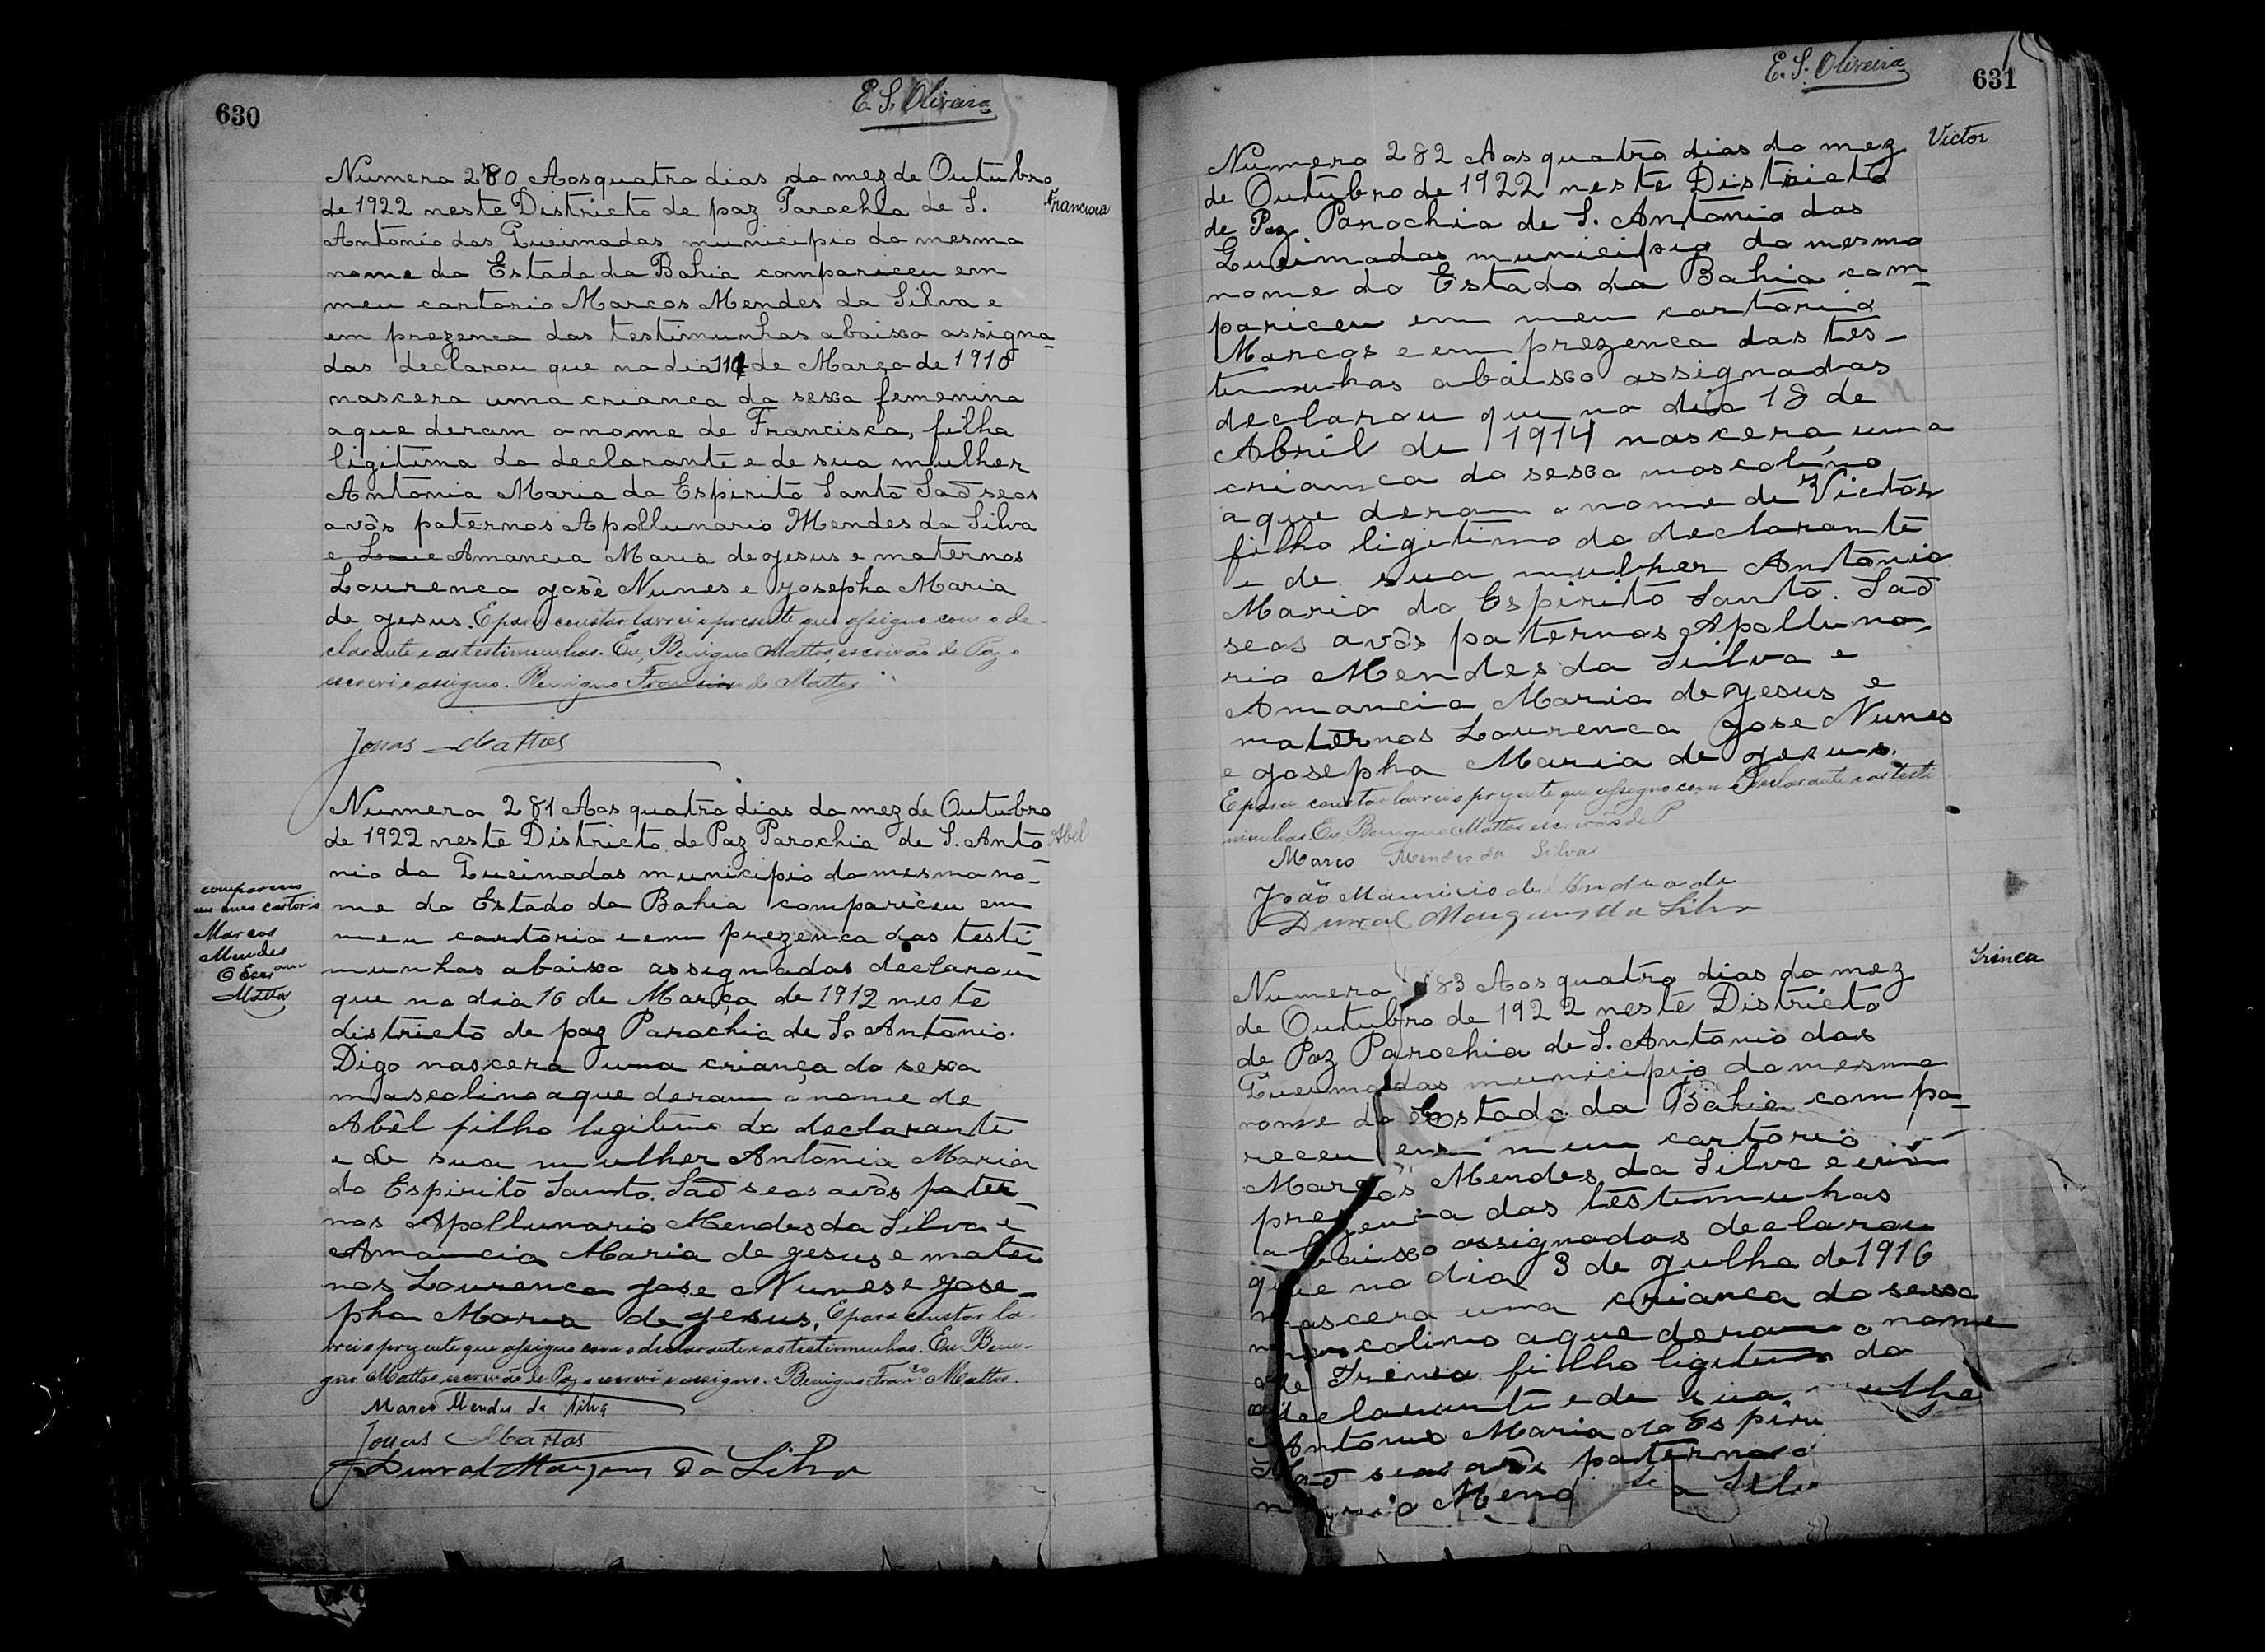 630
E. S. Oliveira
Numero 280 Aos quatro dias do mez de Outubro
de 1922 neste Districto de paz Parochia de S.
Francisca
Antonio das Queimadas municipio do mesmo
nome do Estado da Bahia compariceu em
meu cartorio Marcos Mendes da Silva e
em prezenca das testimunhas abaixo assigna-
das declarou que no dia de Março de 1910
nascera uma crianca do sexo femenino
a que deram o nome de Francisca, filha
ligitima do declarante e de sua mulher
Antonia Maria do Espirito Santo Saõ seos
avôs paternos Apollunario Mendes da Silva
e Amancia Maria de Jesus e maternos
Lourenco José Nunes e Josepha Maria
de Jesus. E para constar lavrei o presente que assigno com o de-
clarante e as testimunhas. Eu, Benigno Mattos, escrivão de Paz o
escrevi e assigno. Benigno Francisco de Mattos
Jonas Mattos
Numero 281 Aos quatro dias do mez de Outubro
de 1922 neste Districto de Paz Parochia de S. Anto
Abel
nio da Queimadas municipio do mesmo no-
me do Estado da Bahia compariceu em
meu cartorio e em prezenca das testi-
munhas abaixo assignadas declarou
que no dia 16 de Março de 1912 neste
districto de paz Parochia de S. Antonio.
Digo nascera uma criança do sexo
mascolino a que deram o nome de
Abêl filho legitimo do declarante
e de sua mulher Antonia Maria
do Espirito Santo. Saõ seos avôs pater-
nos Apollunario Mendes da Silva e
Amancia Maria de Jesus e mater
nos Lourenco Jose Nunes e Jose-
pha Maria de Jesus. E para constar la-
vrei o prezente que assigno com o declarante e as testimunhas. Eu Beni-
gno Mattos escrivão de Paz o escrevi e assigno. Benigno Franco. Mattos.
Marco Mendes da Silva
Jonas Mattos
Durval Marques da Silva
compareceu
em meu cartorio
Marcos
Mendes
O Escram
Mattos
E. S. Oliveira
631
Victor
Numero 282 Aos quatro dias do mez
de Outubro de 1922 neste Districto
de Paz Parochia de S. Antonio das
Queimadas municipio do mesmo
nome do Estado da Bahia com-
pariceu em meu cartorio
Marcos e em prezenca das tes-
timunhas abaixo assignadas
declarou que no dia 18 de
Abril de 1914 nascera uma
crianca do sexo mascolino
a que deram o nome de Victor
filho ligitimo do declarante
e de sua mulher Antonia
Maria do Espirito Santo. Saõ
seos avôs paternos Apolluna-
rio Mendes da Silva e
Amancia Maria de Jesus e
maternos Lourenco Jose Nunes
e Josepha Maria de Jesus.
E para constar lavrei o prezente que assigno com o declarante e as testi
munhas. Eu Benigno Mattos escrivão de P
Marco Mendes da Silva
João Mauricio de Andrade
Durval Marques da Silva
Irineu
Numero 83 Aos quatro dias do mez
de Outubro de 1922 neste Districto
de Paz Parochia de S. Antonio das
Queimadas municipio do mesmo
nome do Estado da Bahia compa-
receu em meu cartorio
Marcos Mendes da Silva e em
prezenca das testimunhas
abaixo assignadas declarou
que no dia 3 de Julho de 1916
nascera uma crianca do sexo
mascolino a que deram o nome
de Irineu filho ligitimo do
declarante e de sua mulhe
Antonia Maria do Espiri
Saõ seos avôs paternos
Mend Silva